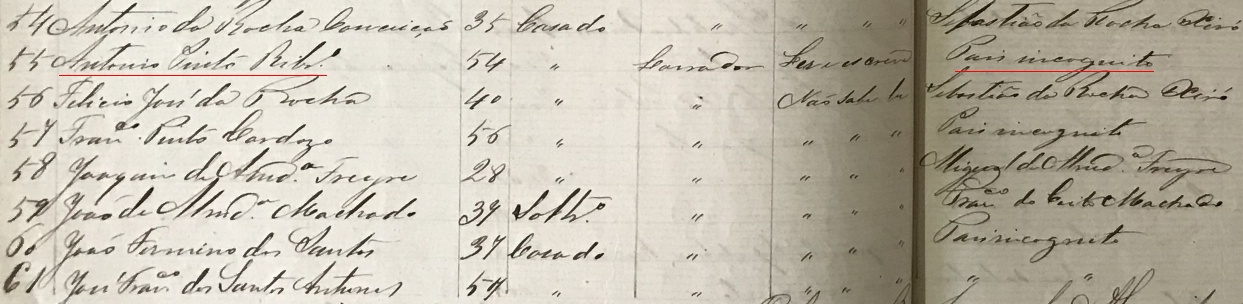 54 Antonio da Rocha Conceição 35 Casado " " " Sebastião da Rocha
55 Antonio Pinto Ribr.º 54 " Lavrador Ler e escrever Pais incognito
56 Felicio José da Rocha 40 " " Não sabe ler Sebastião da Rocha
57 Franco. Pinto Cardozo 56 " " " " " Pais incognito
58 Joaquim de Almd.ª Freyre 28 " " " " " Miguel de Almd.ª Freyre
59 João de Almd.ª Machado 39 Soltr.º " " " " Franco. de Machado
60 João Firmino dos Santos 37 Casado " " " " Pais incognito
61 José Franco. dos Santos Antunes 57 " " " " " " "